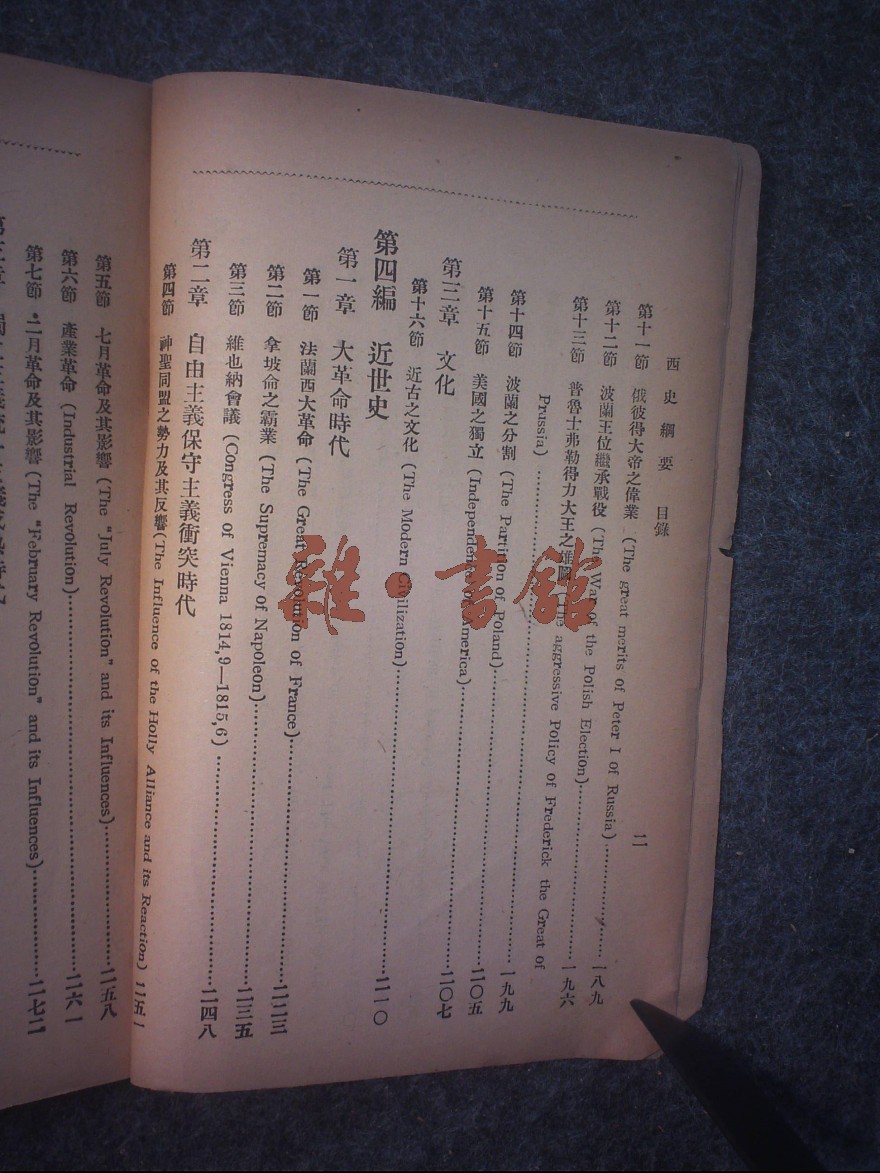 西史綱要 目錄
二
第十一節 俄彼得大帝之偉業 (The great merits of Peter I of Russia)……一八九
第十二節 波蘭王位繼承戰役 (The War of the Polish Election)……一九六
第十三節 普魯士弗勒得力大王之雄圖 (The aggressive Policy of Frederick the Great of
Prussia)……一九九
第十四節 波蘭之分割 (The Partition of Poland)……二〇五
第十五節 美國之獨立 (Independence of America)……二〇七
第三章 文化
第十六節 近古之文化 (The Modern Civilization)……二一〇
第四編 近世史
第一章 大革命時代
第一節 法蘭西大革命 (The Great Revolution of France)……二二三
第二節 拿坡侖之霸業 (The Supremacy of Napoleon)……二三五
第三節 維也納會議 (Congress of Vienna 1814,9—1815,6)……二四八
第二章 自由主義保守主義衝突時代
第四節 神聖同盟之勢力及其反響 (The Influence of the Holly Alliance and its Reaction) 二五一
第五節 七月革命及其影響 (The "July Revolution" and its Influences)……二五八
第六節 產業革命 (Industrial Revolution)……二六一
第七節 二月革命及其影響 (The "February Revolution" and its Influences)……二七二
雜·書館